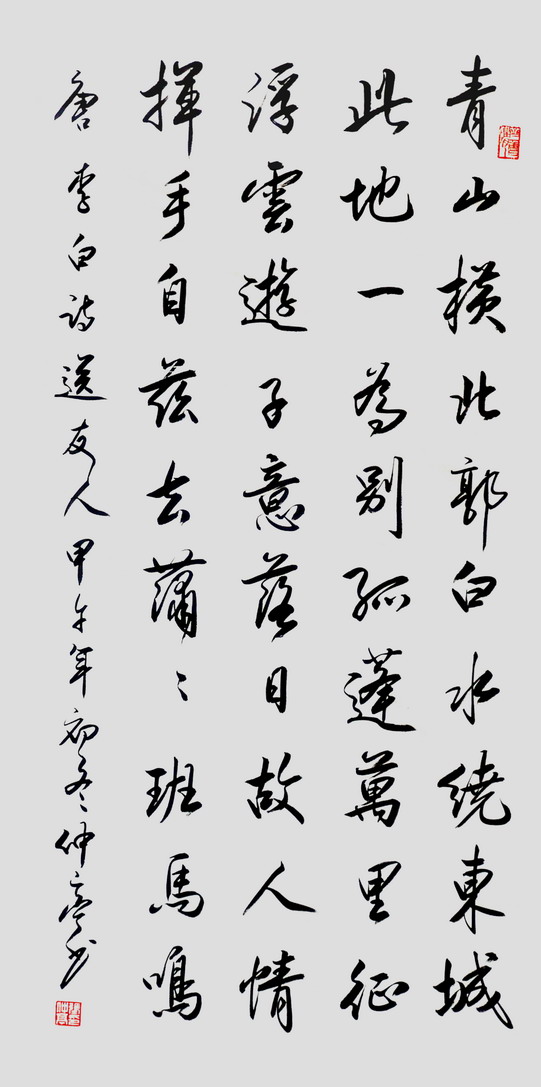 青山橫北郭白水繞東城
此地一為別孤蓬萬里征
浮雲遊子意落日故人情
揮手自茲去蕭〻班馬鳴
唐李白詩送友人甲午年初冬仲亭书